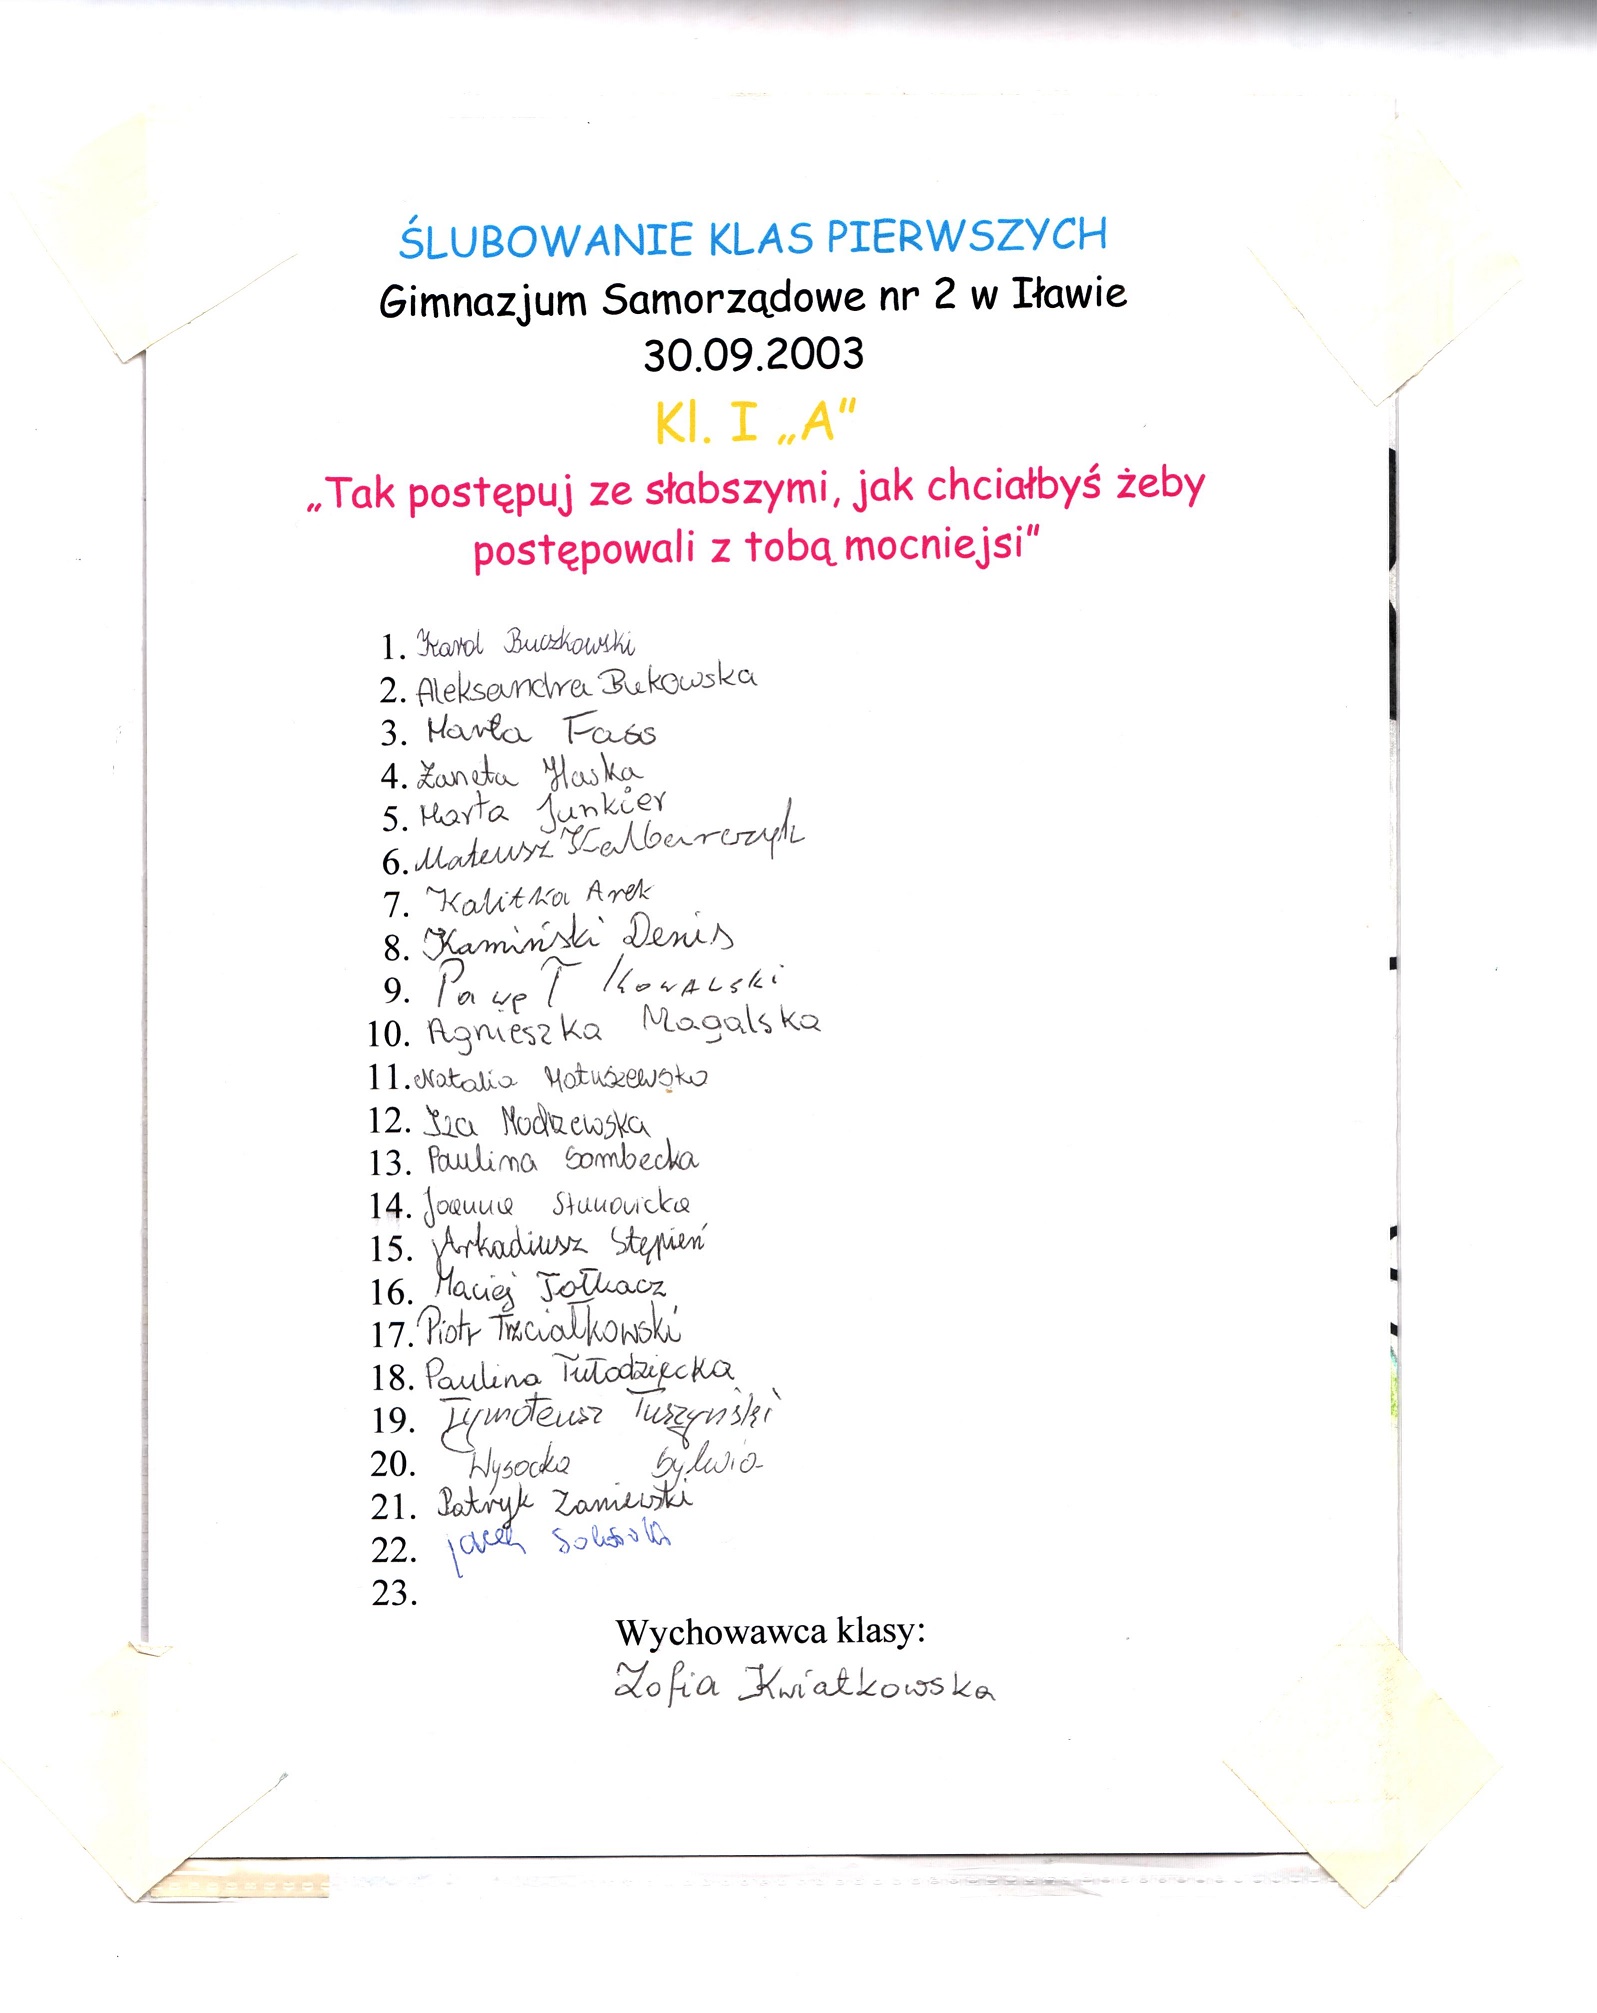 ŚLUBOWANIE KLAS PIERWSZYCH
Gimnazjum Samorządowe nr 2 w Iławie
30.09.2003
Kl. I „A”
„Tak postępuj ze słabszymi, jak chciałbyś żeby
postępowali z tobą mocniejsi”
1. Karol Buczkowski
2. Aleksandra Bukowska
3. Marta Fass
4. Żaneta Haska
5. Marta Junkier
6. Mateusz Kalbarczyk
7. Kalitka Arek
8. Kamiński Denis
9. Paweł Kowalski
10. Agnieszka Magalska
11. Natalia Matuszewska
12. Iza Modrzewska
13. Paulina Sombecka
14. Joanna
15. Arkadiusz Stępień
16. Maciej Tołkacz
17. Piotr Trzciałkowski
18. Paulina Tułodziecka
19. Tymoteusz Tuszyński
20. Wysocka Sylwia
21. Patryk Zaniewski
22. Jacek
23.
Wychowawca klasy:
Zofia Kwiatkowska